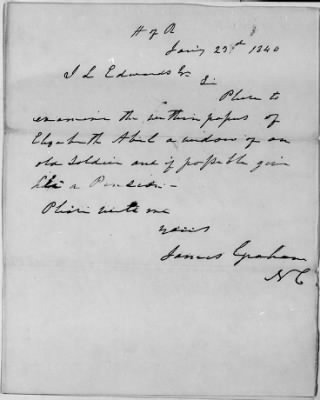 H of R
Jan'y 23rd 1840
J L Edwards Esq
Sir
Please to
examine the within papers of
Elizabeth Abel a widow of an
old Soldier and if possible give
her a Pension -
Please write me
yours
James Graham
N C